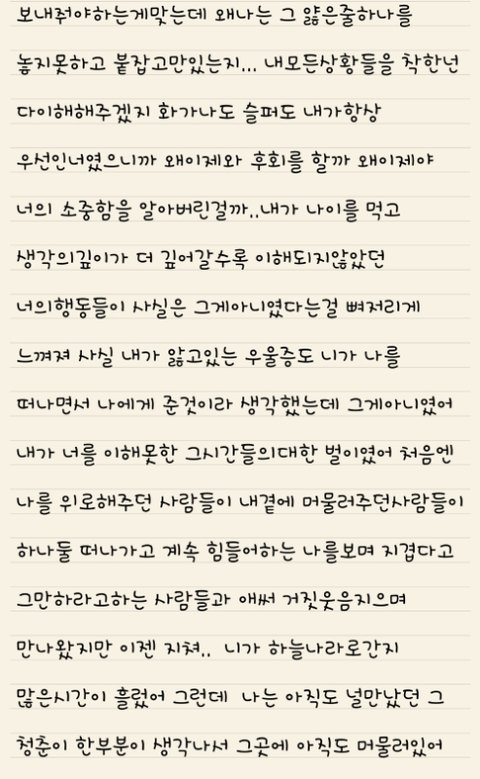 보내줘야하는게맞는데 왜나는 그 얇은줄하나를
놓지못하고 붙잡고만있는지... 내모든상황들을 착한넌
다이해해주겠지 화가나도 슬퍼도 내가항상
우선인너였으니까 왜이제와 후회를 할까 왜이제야
너의 소중함을 알아버린걸까..내가 나이를 먹고
생각의깊이가 더 깊어갈수록 이해되지않았던
너의행동들이 사실은 그게아니였다는걸 뼈저리게
느껴져 사실 내가 앓고있는 우울증도 니가 나를
떠나면서 나에게 준것이라 생각했는데 그게아니였어
내가 너를 이해못한 그시간들의대한 벌이였어 처음엔
나를 위로해주던 사람들이 내곁에 머물러주던사람들이
하나둘 떠나가고 계속 힘들어하는 나를보며 지겹다고
그만하라고하는 사람들과 애써 거짓웃음지으며
만나왔지만 이젠 지쳐.. 니가 하늘나라로간지
많은시간이 흘렀어 그런데 나는 아직도 널만났던 그
청춘이 한부분이 생각나서 그곳에 아직도 머물러있어